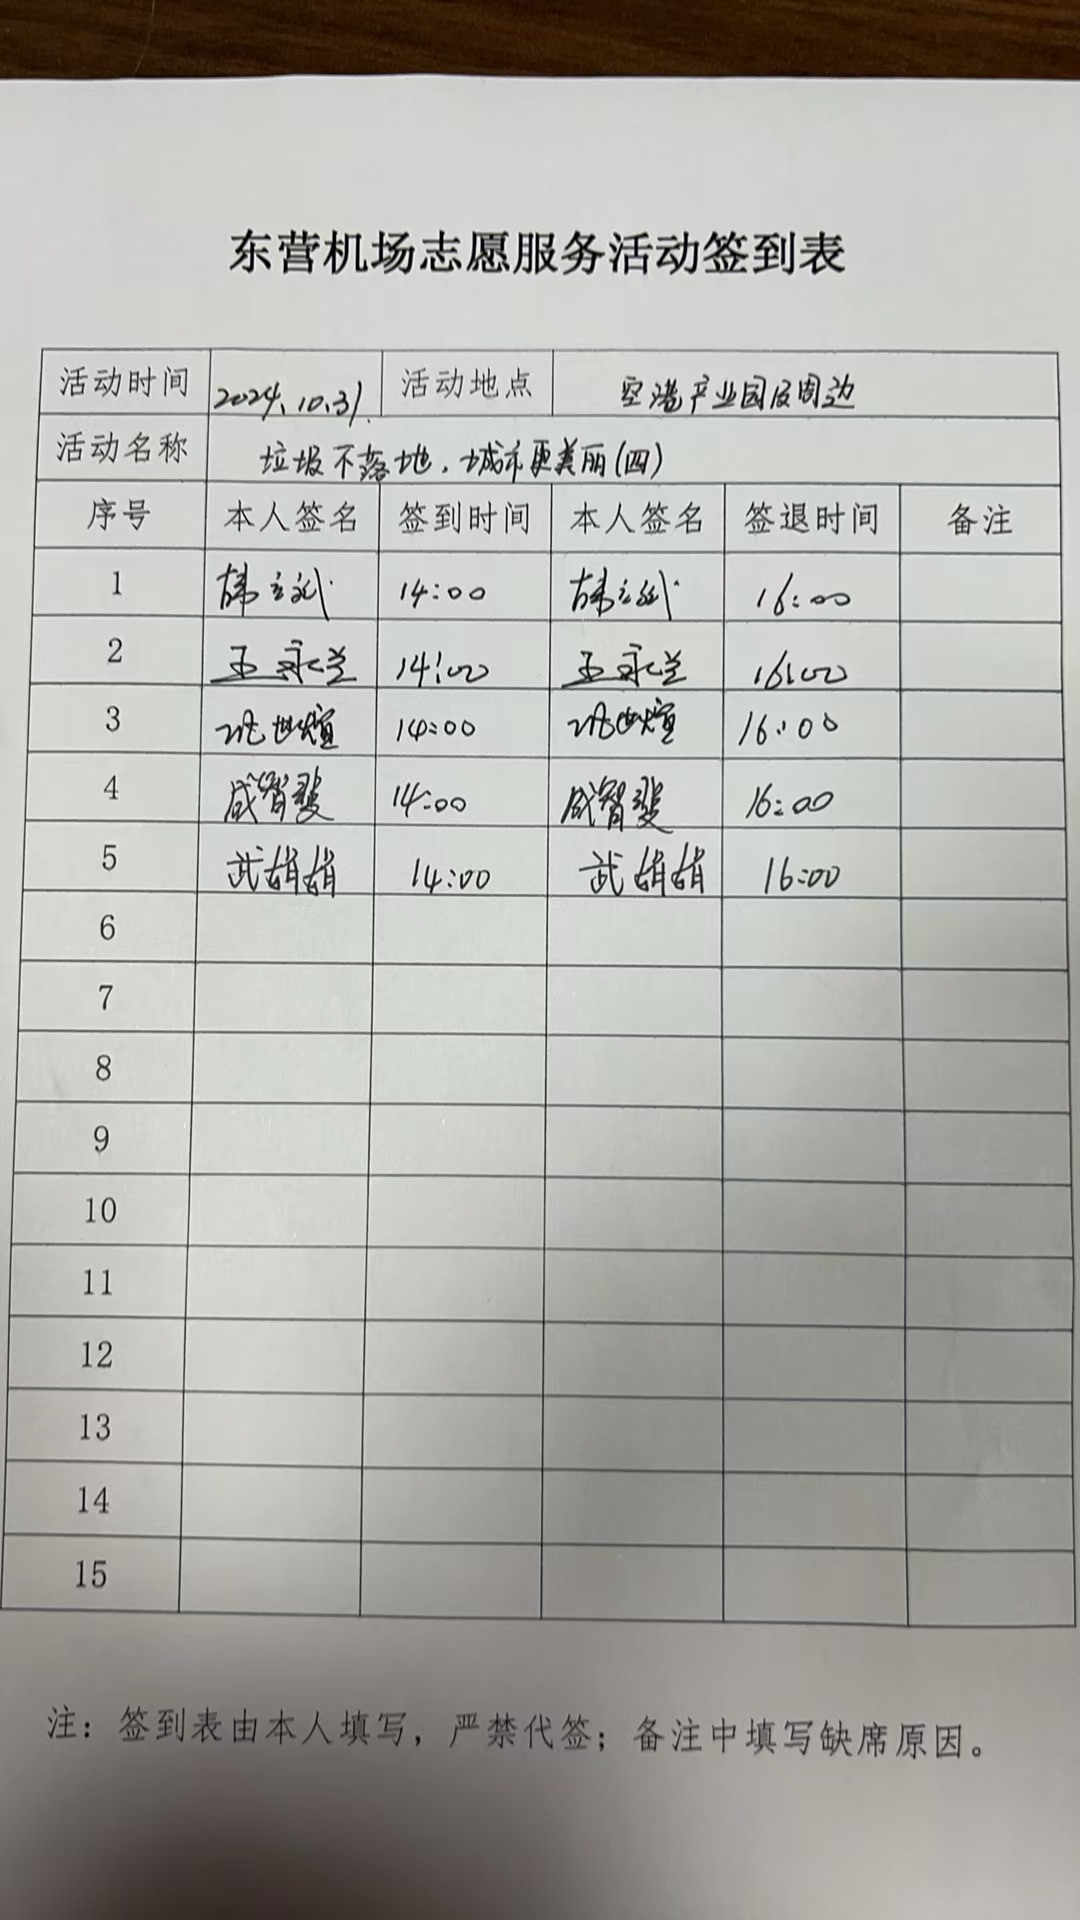 东营机场志愿服务活动签到表
活动时间 2024.10.31. 活动地点 空港产业园及周边
活动名称 垃圾不落地，城市更美丽(四)
序号 本人签名 签到时间 本人签名 签退时间 备注
1 韩立斌 14:00 韩立斌 16:00
2 王永兰 14:00 王永兰 16:00
3 世煊 14:00 世煊 16:00
4 成智斐 14:00 成智斐 16:00
5 武娟娟 14:00 武娟娟 16:00
6
7
8
9
10
11
12
13
14
15
注：签到表由本人填写，严禁代签；备注中填写缺席原因。